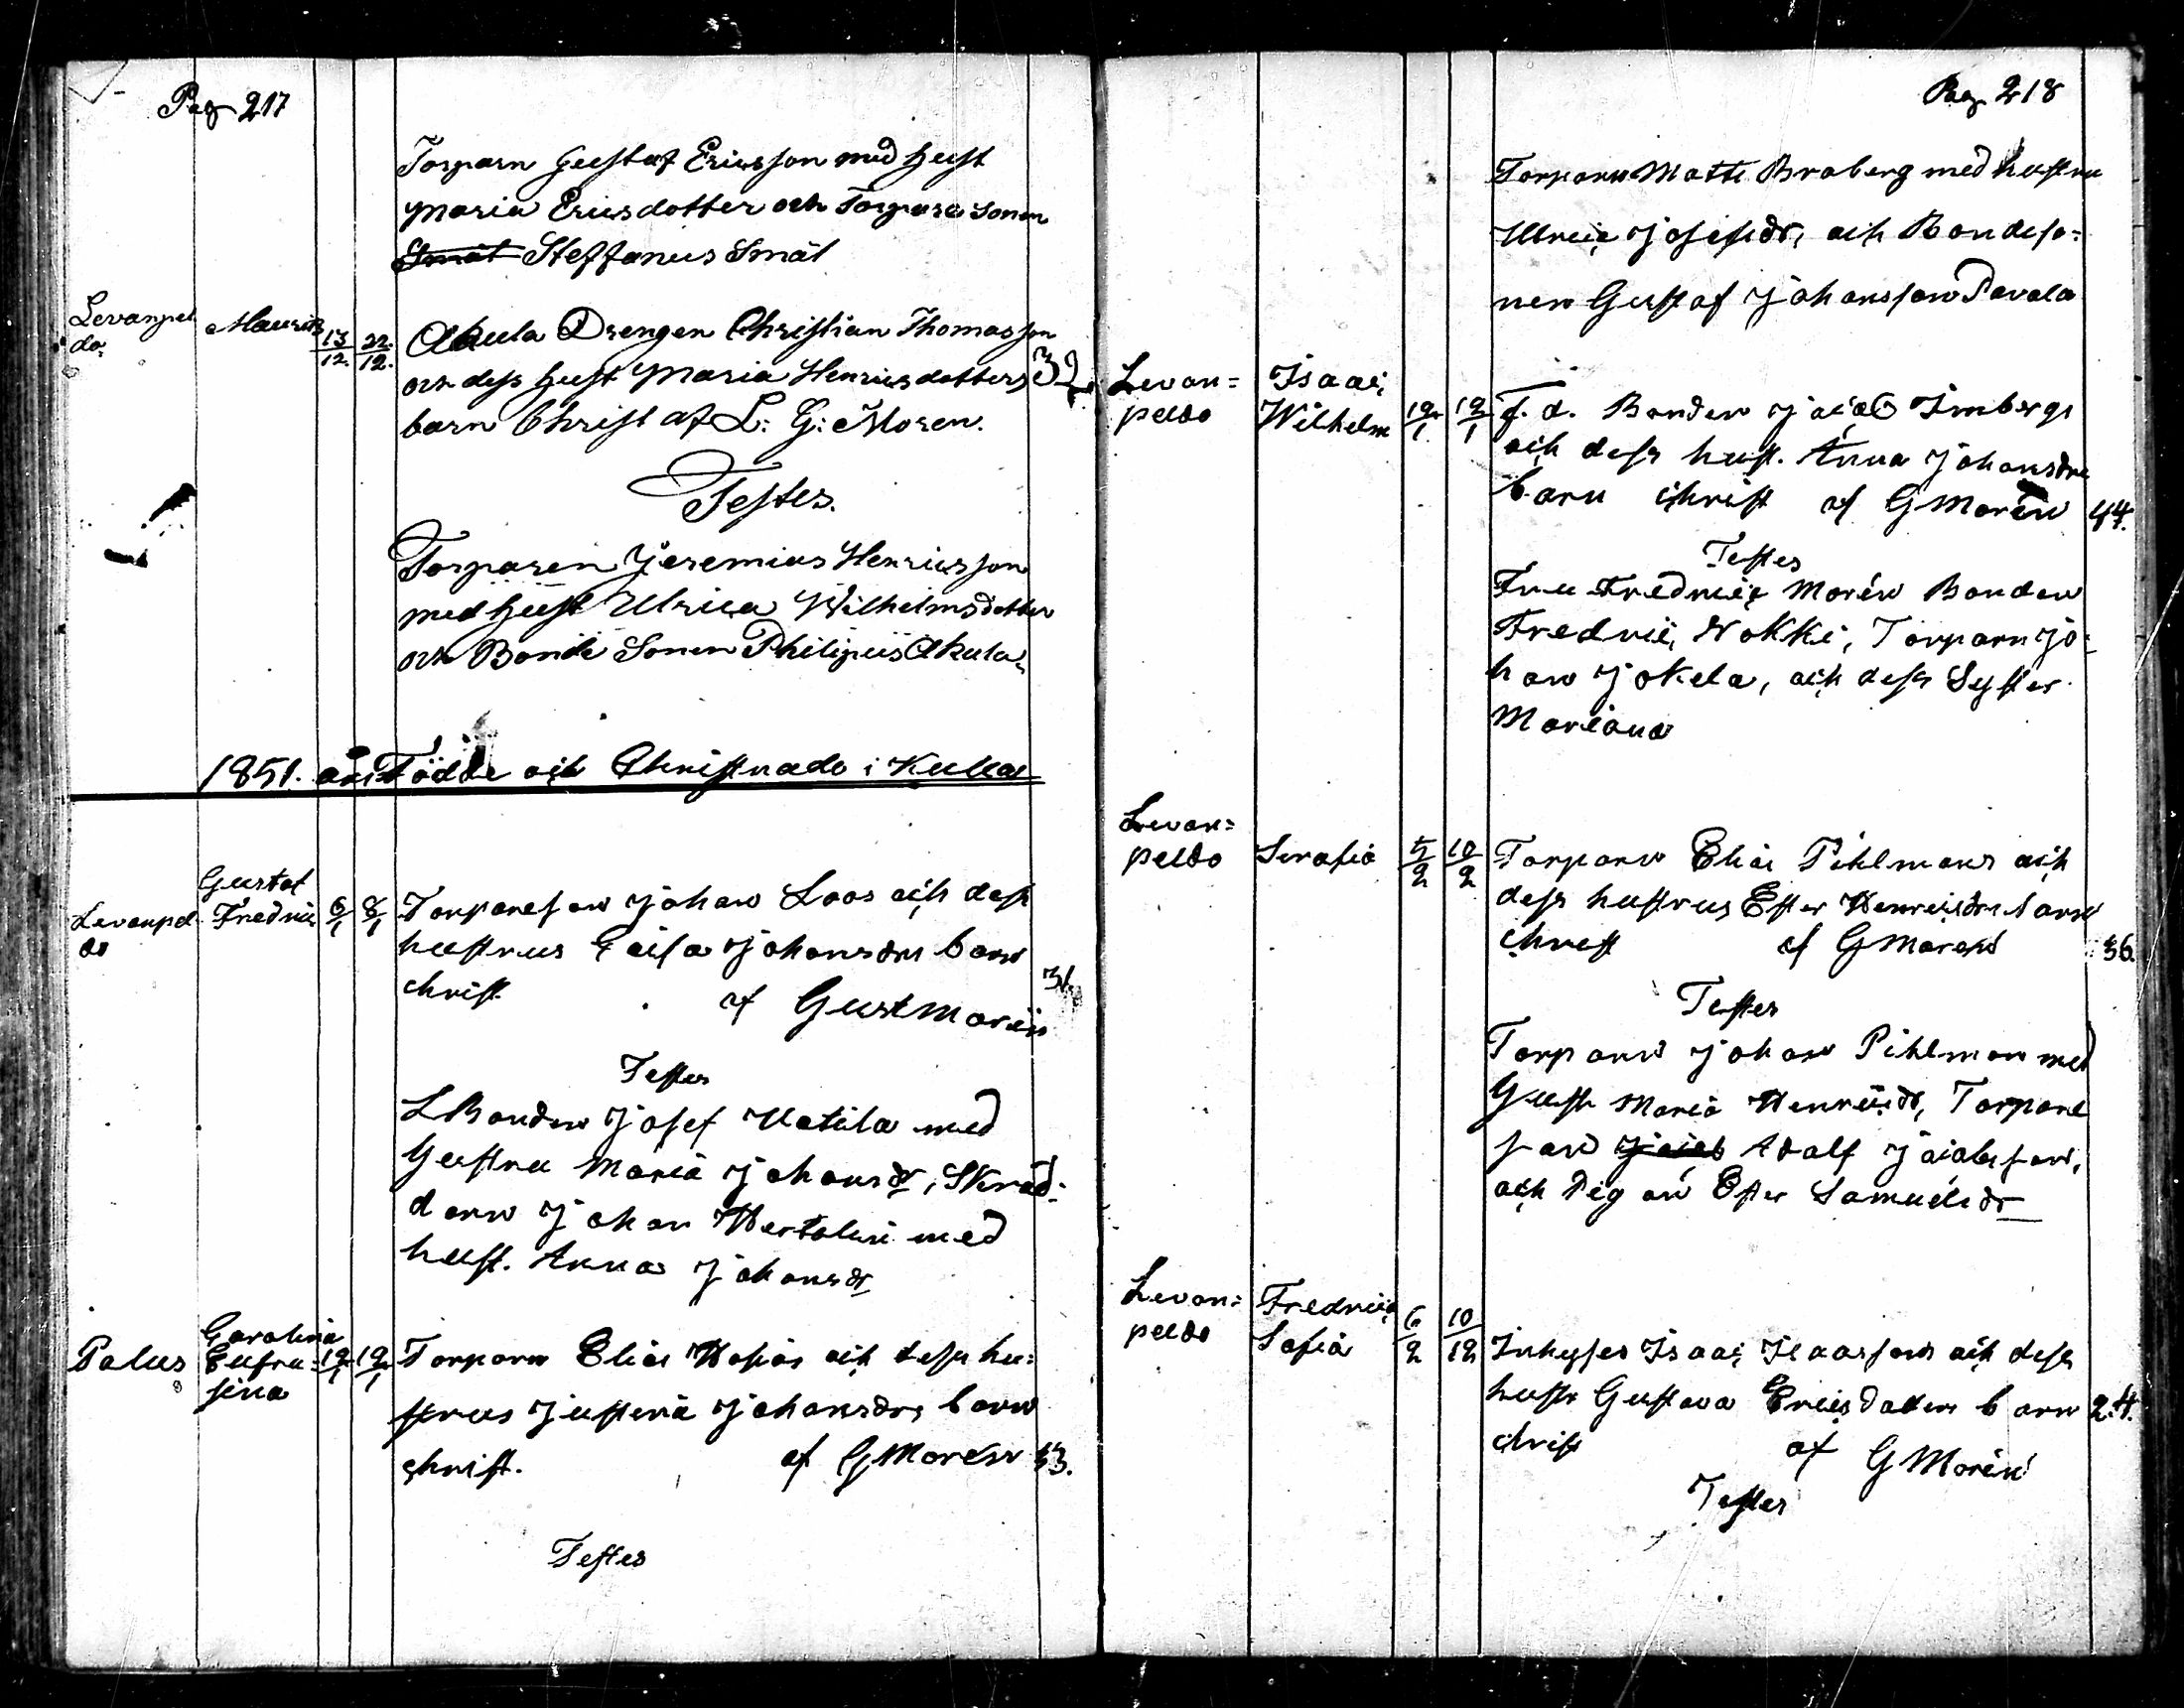 Pag 217
Torparn Gustaf Ericsson med hust
Maria Ericsdotter och Torpare sonen
Smät Steffanus Smät
Levanpel
do,
Mauritz
13/12. 22./12.
Akula Drengen Christian Thomasson
och dess hust Maria Henricsdotters
barn Christ af L: G: Moren.
32
Testes.
Torparen Jeremias Henricsson
med hust Ulrica Wilhelmsdotter
och Bonde Sonen Philipus Akula,
1851. års Födde och Christnade i Kulla
Levanpel
do
Gustaf
Fredric
6/1 8/1
Torpareson Johan Laos och dess
hustrus Caisa Johansdrs barn
christ. af Gust Morén
31.
Testes
LBonden Josef Uotila med
hustru Maria Johansdr, Skräd-
darn Johan Hertalin med
hust. Anna Johansdr
Palus
Carolina
Eufro-
sina
12/1 19/1
Torparn Elias Hofias och dess hu-
strus Justina Johansdrs barn
christ. af G Morén 33.
Testes
Pag. 218
Torparn Matts Braberg med hustru
Ulrica Josefsdr, och Bondeso=
nen Gustaf Johansson Pavola
Levan=
peldo
Isaac
Wilhelm
12/1 19/1
f. d. Bonden Jacob Imbergs
och dess hust. Anna Johansdrs
barn christ af G Morén 44.
Testes
Fru Fredrica Morén Bonden
Fredric Nokki, Torparn Jo-
han Jokela, och dess Syster
Mariana
Levan=
peldo
Serafia
5/2 10/2
Torparn Elias Pihlmans och
dess hustrus Ester Henricsdrs barn
christ af G Morén 36.
Testes
Torparn Johan Pihlman med
Hust Maria Henricsdr, Torpare
son Jacob Adolf Jacobsson,
och Pigan Ester Samuelsdr
Levan=
peldo
Fredrica
Sofia
6/2 10/12
Inhyses Isaac Isaacssons och dess
hustr Gustava Ericsdotters barn 24.
christ af G Morén
Testes